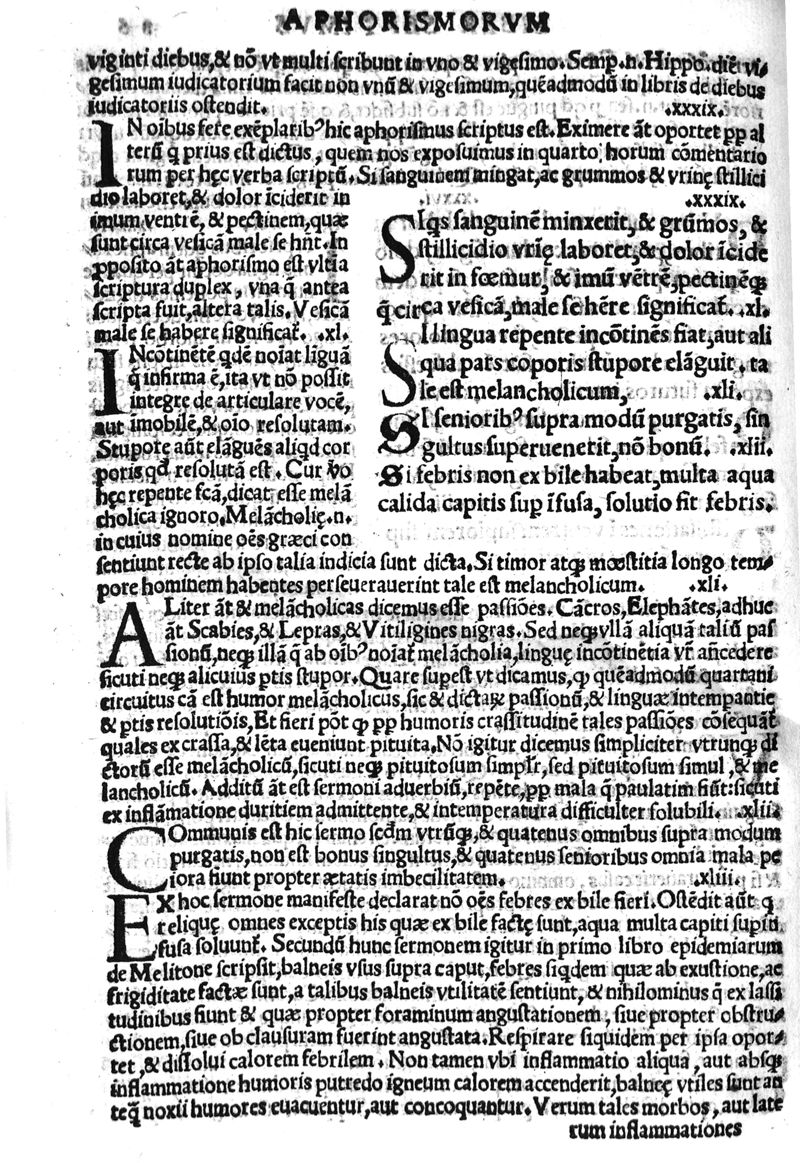 APHORISMORVM
viginti diebus,& nō vt multi scribunt in vno & vigesimo. Semp.n. Hippo. diē vi-
gesimum iudicatorium facit non vnū & vigesimum,quēadmodū in libris de diebus
iudicatoriis ostendit. .xxxix.
IN oībus fere exēplaribꝰ hic aphorismus scriptus est. Eximere āt oportet ꝓp al
terū q̄ prius est dictus, quem nos exposuimus in quarto horum cōmentario
rum per hęc verba scriptū. Si sanguinem mingat, ac grummos & vrinę stillici
dio laboret,& dolor īciderit in
imum ventrē, & pectinem, quæ
sunt circa vesicā male se hn̄t. In
ꝓposito āt aphorismo est vltīa
scriptura duplex, vna q̄ antea
scripta fuit, altera talis. Vesicā
male se habere significat̄. .xl.
INcōtinētē qdē noīat līguā
q̄ infirma ē, ita vt nō possit
integre de articulare vocē,
aut īmobilē,& oīo resolutam.
Stupore aūt elāguēs aliqd cor
poris qd̄ resolutā est. Cur ꝟo
hęc repente fcā, dicat esse melā
cholica ignoro. Melācholię.n.
in cuius nomine oēs græci con
.xxxix.
SIqs sanguinē minxerit, & grūmos, &
stillicidio vrię laboret,& dolor īcide
rit in fœmur, & imū vētrē, pectinēꝙ
q̄ circa vesicā, male se hēre significat̄. .xl.
SI lingua repente incōtinēs fiat, aut ali
qua pars coporis stupore elāguit, ta
le est melancholicum, .xli.
SI senioribꝰ supra modū purgatis, sin
gultus superuenerit, nō bonū. .xlii.
Si febris non ex bile habeat, multa aqua
calida capitis sup īfusa, solutio fit febris.
sentiunt recte ab ipso talia indicia sunt dicta. Si timor atqꝫ mœstitia longo tem-
pore hominem habentes perseuerauerint tale est melancholicum. .xli.
ALiter āt & melācholicas dicemus esse passiōes. Cācros, Elephātes, adhuc
āt Scabies,& Lepras,& Vitiligines nigras. Sed neqꝫ vllā aliquā taliū pas
sionū, neqꝫ illā q̄ ab oībꝰ noīat̄ melācholia, linguę incōtinētia vr̄ ancedere
sicuti neqꝫ alicuius ptis stupor. Quare supest vt dicamus, ꝙ quēadmodū quartani
circuitus cā est humor melācholicus, sic & dictaꝝ passionū,& linguæ intempantię
& ptis resolutiōis, Et fieri pōt ꝙ ꝓp humoris crassitudinē tales passiōes cōsequāt̄
quales ex crassa,& lēta eueniunt pituita. Nō igitur dicemus simpliciter vtrunqꝫ di
ctorū esse melācholicū, sicuti neqꝫ pituitosum simplr̄, sed pituitosum simul, & me
lancholicū. Additū āt est sermoni aduerbiū, repēte, ꝓp mala q̄ paulatim fiūt: sicuti
ex inflāmatione duritiem admittente,& intemperatura difficulter solubili. .xlii.
COmmunis est hic sermo scdm vtrūqꝫ,& quatenus omnibus supra modum
purgatis, non est bonus singultus,& quatenus senioribus omnia mala pe
iora fiunt propter ætatis imbecilitatem. .xliii.
EX hoc sermone manifeste declarat nō oēs febres ex bile fieri. Ostēdit aūt q
reliquę omnes exceptis his quæ ex bile factę sunt, aqua multa capiti supin
fusa soluunt̄. Secundū hunc sermonem igitur in primo libro epidemiarum
de Melitone scripsit, balneis vsus supra caput, febres siqdem quæ ab exustione, ac
frigiditate factæ sunt, a talibus balneis vtilitatē sentiunt, & nihilominus q̄ ex lassi
tudinibus fiunt & quæ propter foraminum angustationem, siue propter obstru-
ctionem, siue ob clausuram fuerint angustata. Respirare siquidem per ipsa opor-
tet,& dissolui calorem febrilem. Non tamen vbi inflammatio aliqua, aut absqꝫ
inflammatione humoris putredo igneum calorem accenderit, balneę vtiles sunt an
teq̄ noxii humores euacuentur, aut concoquantur. Verum tales morbos, aut late
rum inflammationes